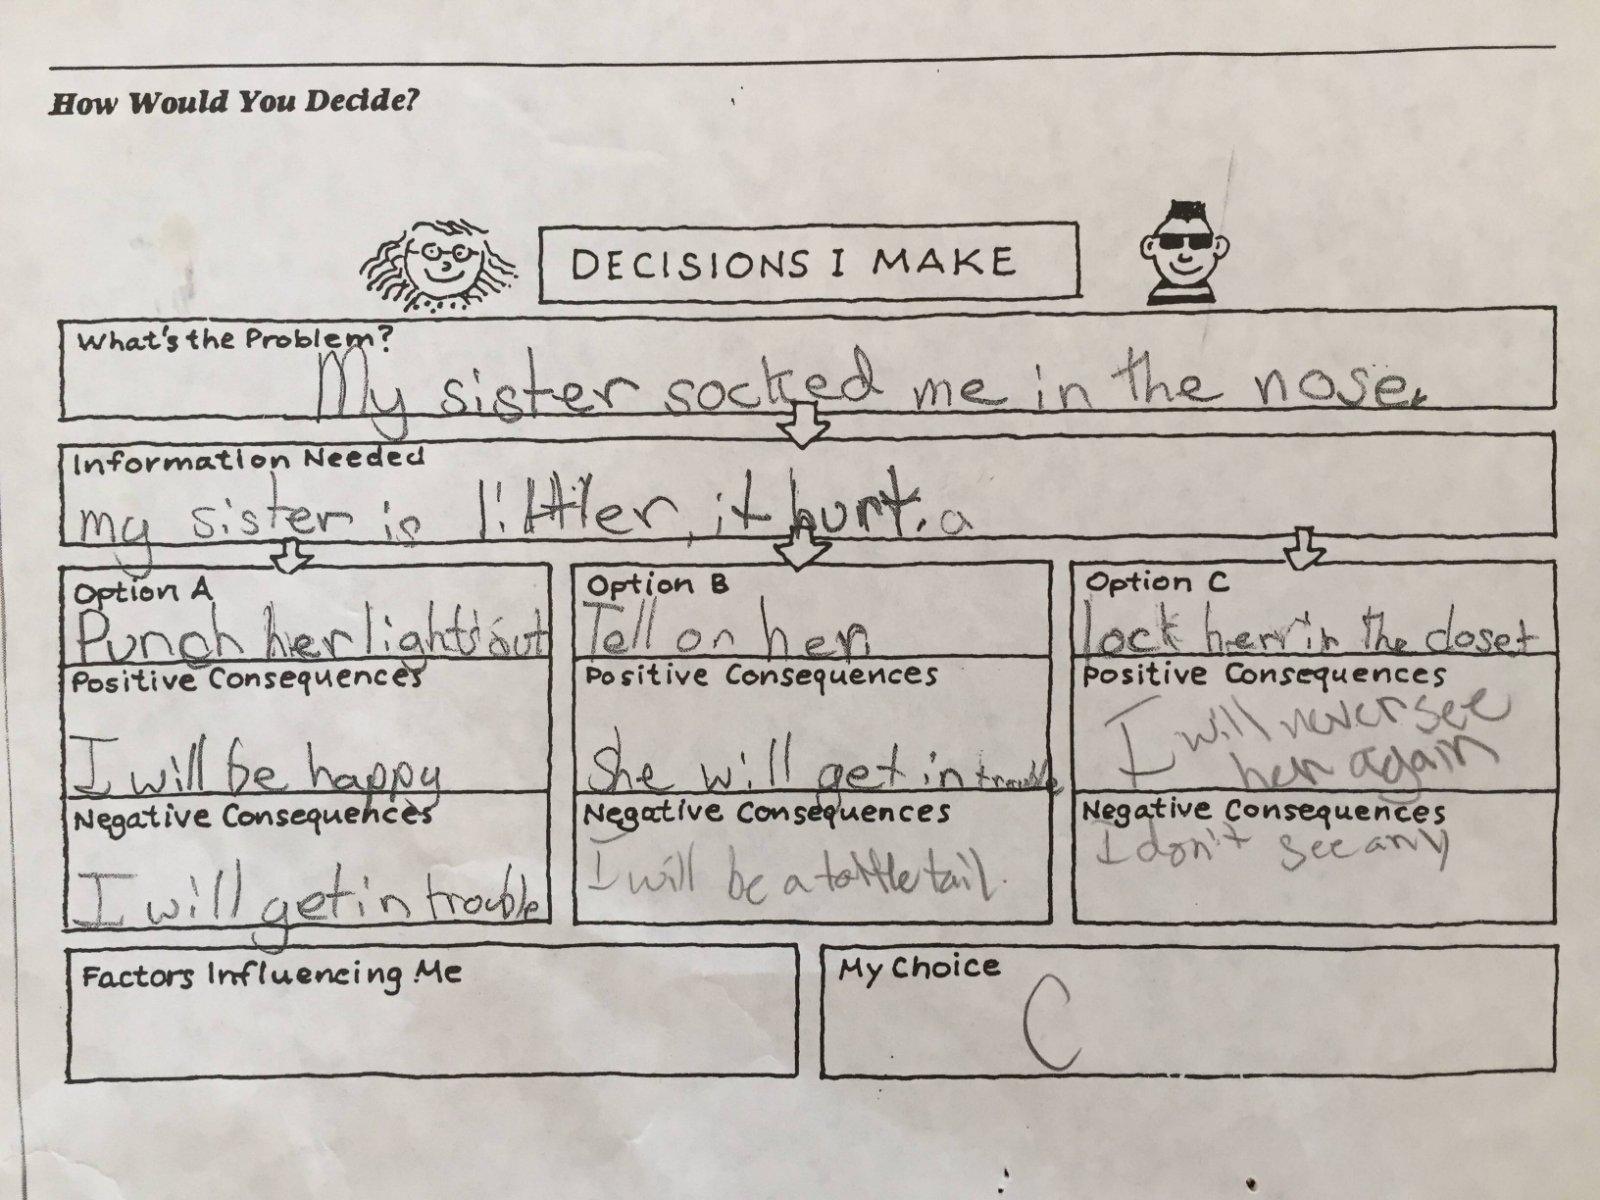 How Would You Decide?
DECISIONS I MAKE
What's the Problem?
My sister socked me in the nose.
Information Needed
my sister is littler, it hurt. a
Option A
Punch her lights out
Positive Consequences
I will be happy
Negative Consequences
I will get in trouble
Option B
Tell on her
Positive Consequences
She will get in trouble
Negative Consequences
I will be a tattle tail.
Option C
lock herr in the closet
Positive Consequences
I will never see
her again
Negative Consequences
I don't see any
Factors Influencing Me
My Choice
C